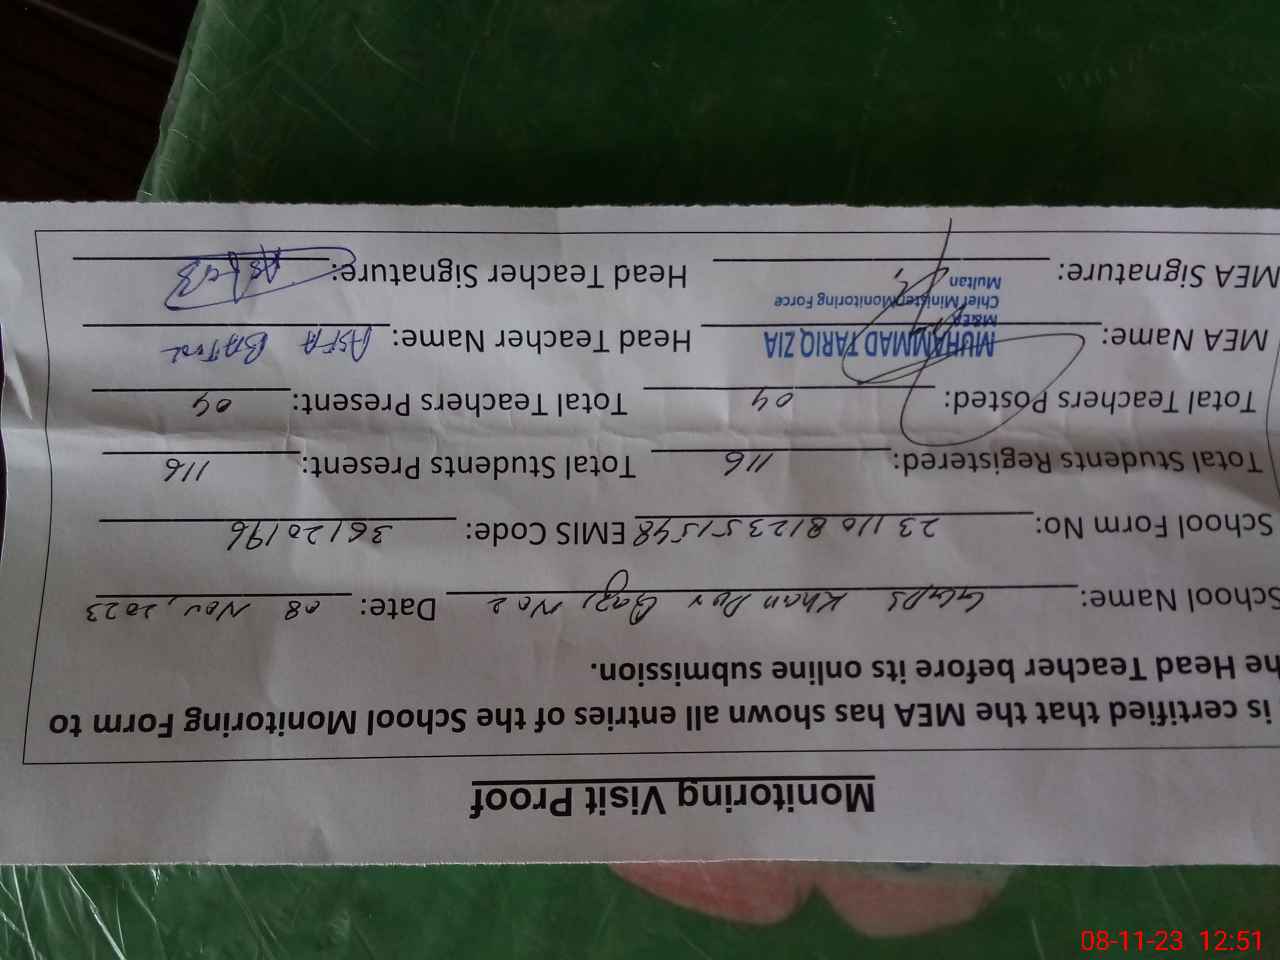 Monitoring Visit Proof
is certified that the MEA has shown all entries of the School Monitoring Form to
he Head Teacher before its online submission.
School Name: GGPS Khan Pur No 2 Date: 08 Nov, 2023
School Form No: 231108123515548 EMIS Code: 36120196
Total Students Registered: 116 Total Students Present: 116
Total Teachers Posted: 04 Total Teachers Present: 04
MEA Name: MUHAMMAD TARIQ ZIA Head Teacher Name: ASFA BATOOL
M&EA
Chief Minister Monitoring Force
Multan
MEA Signature: Head Teacher Signature:
08-11-23 12:51